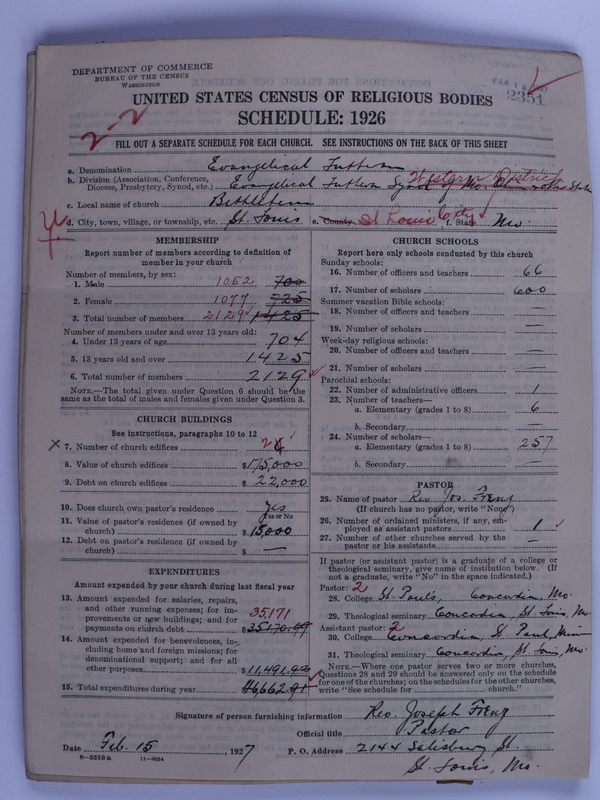 DEPARTMENT OF COMMERCE
BUREAU OF THE CENSUS
WASHINGTON
2351
UNITED STATES CENSUS OF RELIGIOUS BODIES
SCHEDULE: 1926
2-2
FILL OUT A SEPARATE SCHEDULE FOR EACH CHURCH. SEE INSTRUCTIONS ON THE BACK OF THIS SHEET
a. Denomination Evangelical Lutheran
b. Division (Association, Conference, Diocese, Presbytery, Synod, etc.) Evangelical Lutheran Synod of Mo. Ohio & other States
Western District
c. Local name of church Bethlehem
d. City, town, village, or township, etc. St. Louis e. County St Louis City f. State Mo.
MEMBERSHIP
Report number of members according to definition of
member in your church
Number of members, by sex:
1. Male 1052 700
2. Female 1077 725
3. Total number of members 2129 1425
Number of members under and over 13 years old:
4. Under 13 years of age 704
5. 13 years old and over 1425
6. Total number of members 2129
NOTE.—The total given under Question 6 should be the
same as the total of males and females given under Question 3.
CHURCH BUILDINGS
See instructions, paragraphs 10 to 12
x 7. Number of church edifices 2
8. Value of church edifices $175,000
9. Debt on church edifices $22,000
10. Does church own pastor's residence Yes
Yes or No
11. Value of pastor's residence (if owned by
church) $15,000
12. Debt on pastor's residence (if owned by
church) $ —
EXPENDITURES
Amount expended by your church during last fiscal year
13. Amount expended for salaries, repairs,
and other running expenses; for im-
provements or new buildings; and for
payments on church debt 35171 $35170.99
14. Amount expended for benevolences, in-
cluding home and foreign missions; for
denominational support; and for all
other purposes $11,491.92
15. Total expenditures during year $46,662.91
CHURCH SCHOOLS
Report here only schools conducted by this church
Sunday schools:
16. Number of officers and teachers 66
17. Number of scholars 600
Summer vacation Bible schools:
18. Number of officers and teachers —
19. Number of scholars —
Week-day religious schools:
20. Number of officers and teachers —
21. Number of scholars —
Parochial schools:
22. Number of administrative officers 1
23. Number of teachers—
a. Elementary (grades 1 to 8) 6
b. Secondary —
24. Number of scholars—
a. Elementary (grades 1 to 8) 257
b. Secondary —
PASTOR
25. Name of pastor Rev Jos. Frenz
(If church has no pastor, write "None")
26. Number of ordained ministers, if any, em-
ployed as assistant pastors 1
27. Number of other churches served by the
pastor or his assistants —
If pastor (or assistant pastor) is a graduate of a college or
theological seminary, give name of institution below. (If
not a graduate, write "No" in the space indicated.)
Pastor: 2
28. College St. Pauls, Concordia, Mo.
29. Theological seminary Concordia, St. Louis, Mo
Assistant pastor: 2
30. College Concordia, St. Paul, Minn
31. Theological seminary Concordia, St. Louis, Mo.
NOTE.—Where one pastor serves two or more churches,
Questions 28 and 29 should be answered only on the schedule
for one of the churches; on the schedules for the other churches,
write "See schedule for church."
Signature of person furnishing information Rev. Joseph Frenz
Official title Pastor
Date Feb. 15 1927 P. O. Address 2144 Salisbury St.
St. Louis, Mo.
8—5518a 11—9254